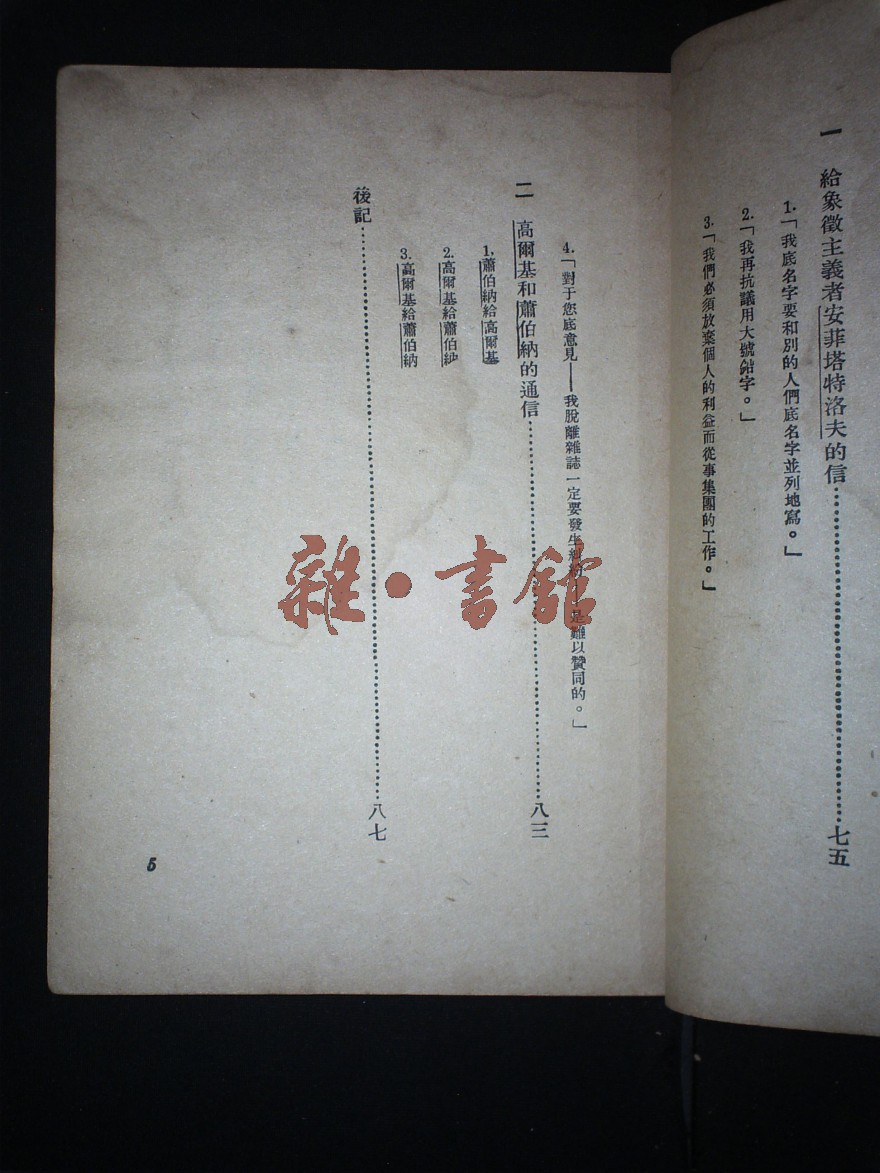 一　給象徵主義者安菲塔特洛夫的信……………………七五
1.「我底名字要和別的人們底名字並列地寫。」
2.「我再抗議用大號鉛字。」
3.「我們必須放棄個人的利益而從事集團的工作。」
4.「對于您底意見——我脫離雜誌一定要發生糾紛——是難以贊同的。」
二　高爾基和蕭伯納的通信……………………八三
1.蕭伯納給高爾基
2.高爾基給蕭伯納
3.高爾基給蕭伯納
後記……………………八七
5
雜·書館